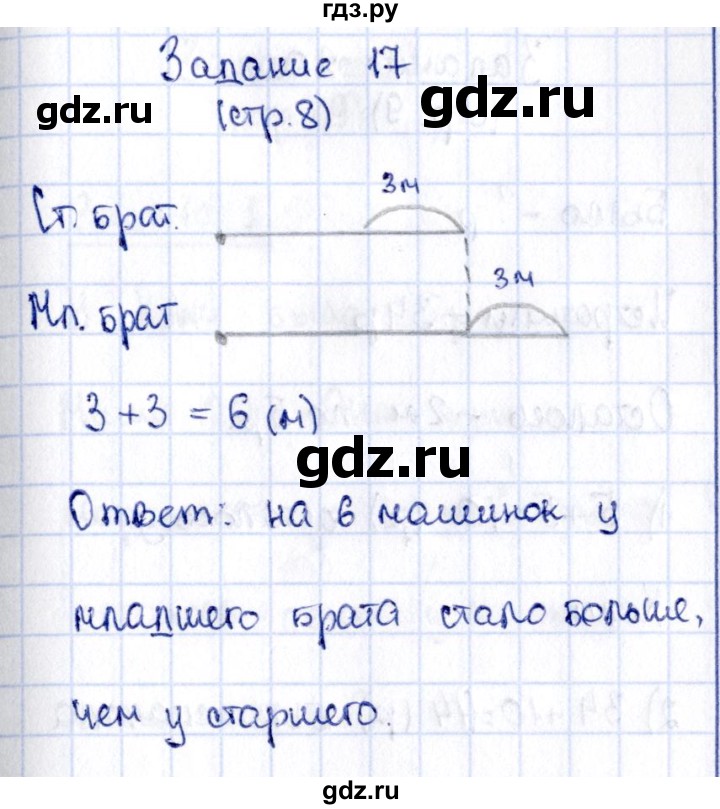 гдз.ру
Задание 17
gdz.ru gdz.ru
(стр.8)
3м
Ст. брат.
3м
Мл. брат
3 + 3 = 6 (м)
gdz.ru
Ответ: на 6 машинок у
младшего брата стало больше,
чем у старшего.
gdz.ru